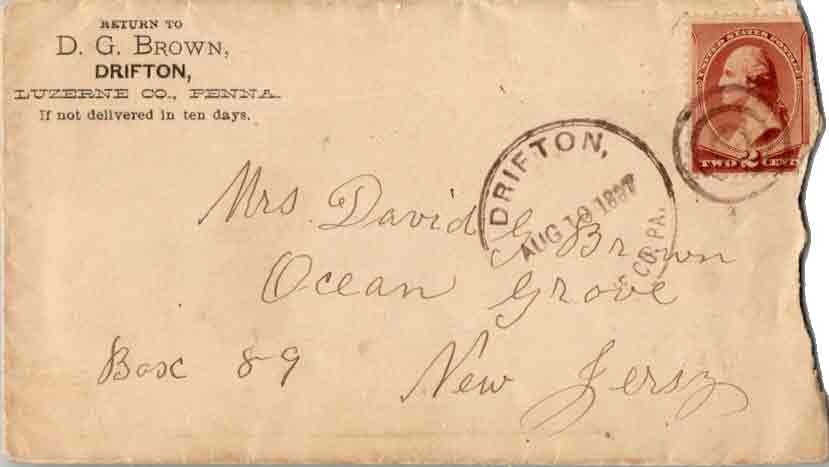 RETURN TO
D. G. BROWN,
DRIFTON,
LUZERNE CO., PENNA.
If not delivered in ten days.
UNITED STATES POSTAGE
TWO 2 CENTS
DRIFTON,
AUG 19
CO. PA.
Mrs. David G. Brown
Ocean Grove
Box 89 New Jersy